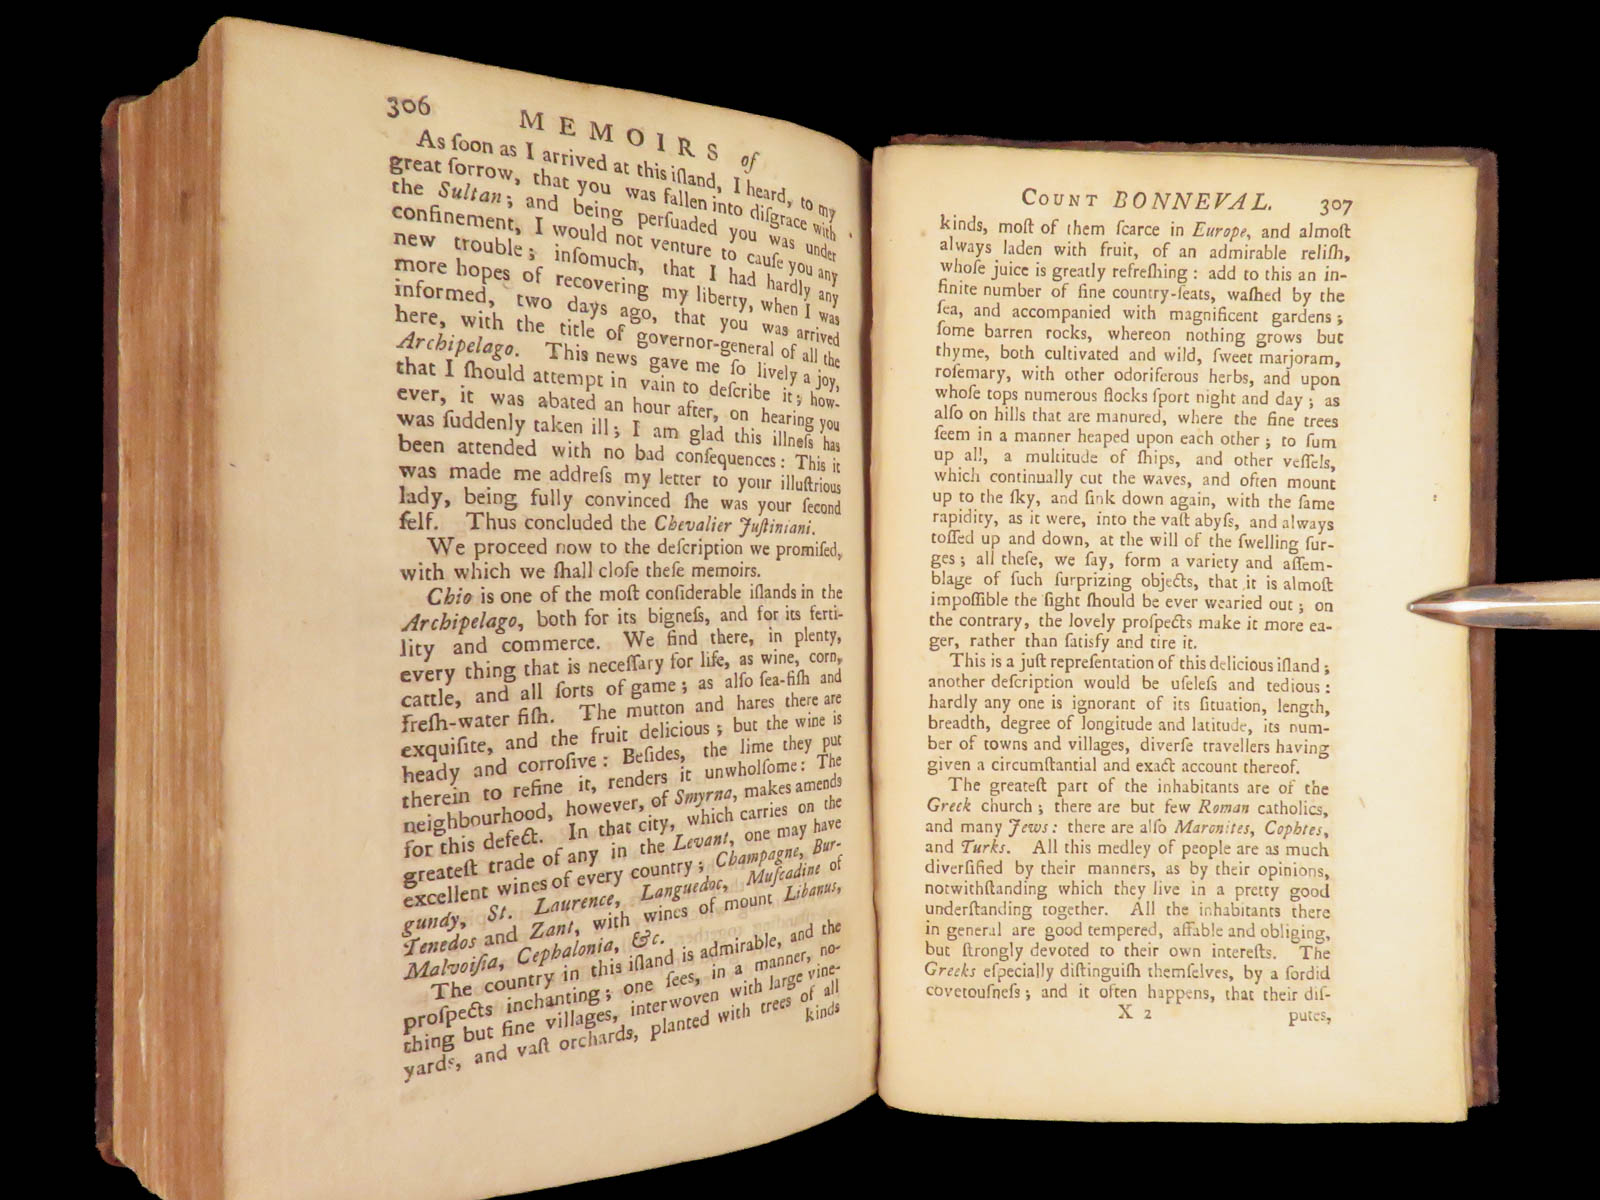 306
MEMOIRS of
As ſoon as I arrived at this iſland, I heard, to my
great ſorrow, that you was fallen into diſgrace with
the Sultan; and being perſuaded you was under
confinement, I would not venture to cauſe you any
new trouble; inſomuch, that I had hardly any
more hopes of recovering my liberty, when I was
informed, two days ago, that you was arrived
here, with the title of governor-general of all the
Archipelago. This news gave me ſo lively a joy,
that I ſhould attempt in vain to deſcribe it; how-
ever, it was abated an hour after, on hearing you
was ſuddenly taken ill; I am glad this illneſs has
been attended with no bad conſequences: This it
was made me addreſs my letter to your illuſtrious
lady, being fully convinced ſhe was your ſecond
ſelf. Thus concluded the Chevalier Juſtiniani.
We proceed now to the deſcription we promiſed,
with which we ſhall cloſe theſe memoirs.
Chio is one of the moſt conſiderable iſlands in the
Archipelago, both for its bigneſs, and for its ferti-
lity and commerce. We find there, in plenty,
every thing that is neceſſary for life, as wine, corn,
cattle, and all ſorts of game; as alſo ſea-fiſh and
freſh-water fiſh. The mutton and hares there are
exquiſite, and the fruit delicious; but the wine is
heady and corroſive: Beſides, the lime they put
therein to refine it, renders it unwholſome: The
neighbourhood, however, of Smyrna, makes amends
for this defect. In that city, which carries on the
greateſt trade of any in the Levant, one may have
excellent wines of every country; Champagne, Bur-
gundy, St. Laurence, Languedoc, Muſcadine of
Tenedos and Zant, with wines of mount Libanus,
Malvoiſia, Cephalonia, &c.
The country in this iſland is admirable, and the
proſpects inchanting; one ſees, in a manner, no-
thing but fine villages, interwoven with large vine-
yards, and vaſt orchards, planted with trees of all
kinds
COUNT BONNEVAL. 307
kinds, moſt of them ſcarce in Europe, and almoſt
always laden with fruit, of an admirable reliſh,
whoſe juice is greatly refreſhing: add to this an in-
finite number of fine country-ſeats, waſhed by the
ſea, and accompanied with magnificent gardens;
ſome barren rocks, whereon nothing grows but
thyme, both cultivated and wild, ſweet marjoram,
roſemary, with other odoriferous herbs, and upon
whoſe tops numerous flocks ſport night and day; as
alſo on hills that are manured, where the fine trees
ſeem in a manner heaped upon each other; to ſum
up all, a multitude of ſhips, and other veſſels,
which continually cut the waves, and often mount
up to the ſky, and ſink down again, with the ſame
rapidity, as it were, into the vaſt abyſs, and always
toſſed up and down, at the will of the ſwelling ſur-
ges; all theſe, we ſay, form a variety and aſſem-
blage of ſuch ſurprizing objects, that it is almoſt
impoſſible the ſight ſhould be ever wearied out; on
the contrary, the lovely proſpects make it more ea-
ger, rather than ſatisfy and tire it.
This is a juſt repreſentation of this delicious iſland;
another deſcription would be uſeleſs and tedious:
hardly any one is ignorant of its ſituation, length,
breadth, degree of longitude and latitude, its num-
ber of towns and villages, diverſe travellers having
given a circumſtantial and exact account thereof.
The greateſt part of the inhabitants are of the
Greek church; there are but few Roman catholics,
and many Jews: there are alſo Maronites, Cophtes,
and Turks. All this medley of people are as much
diverſified by their manners, as by their opinions,
notwithſtanding which they live in a pretty good
underſtanding together. All the inhabitants there
in general are good tempered, affable and obliging,
but ſtrongly devoted to their own intereſts. The
Greeks eſpecially diſtinguiſh themſelves, by a ſordid
covetouſneſs; and it often happens, that their diſ-
X 2 putes,